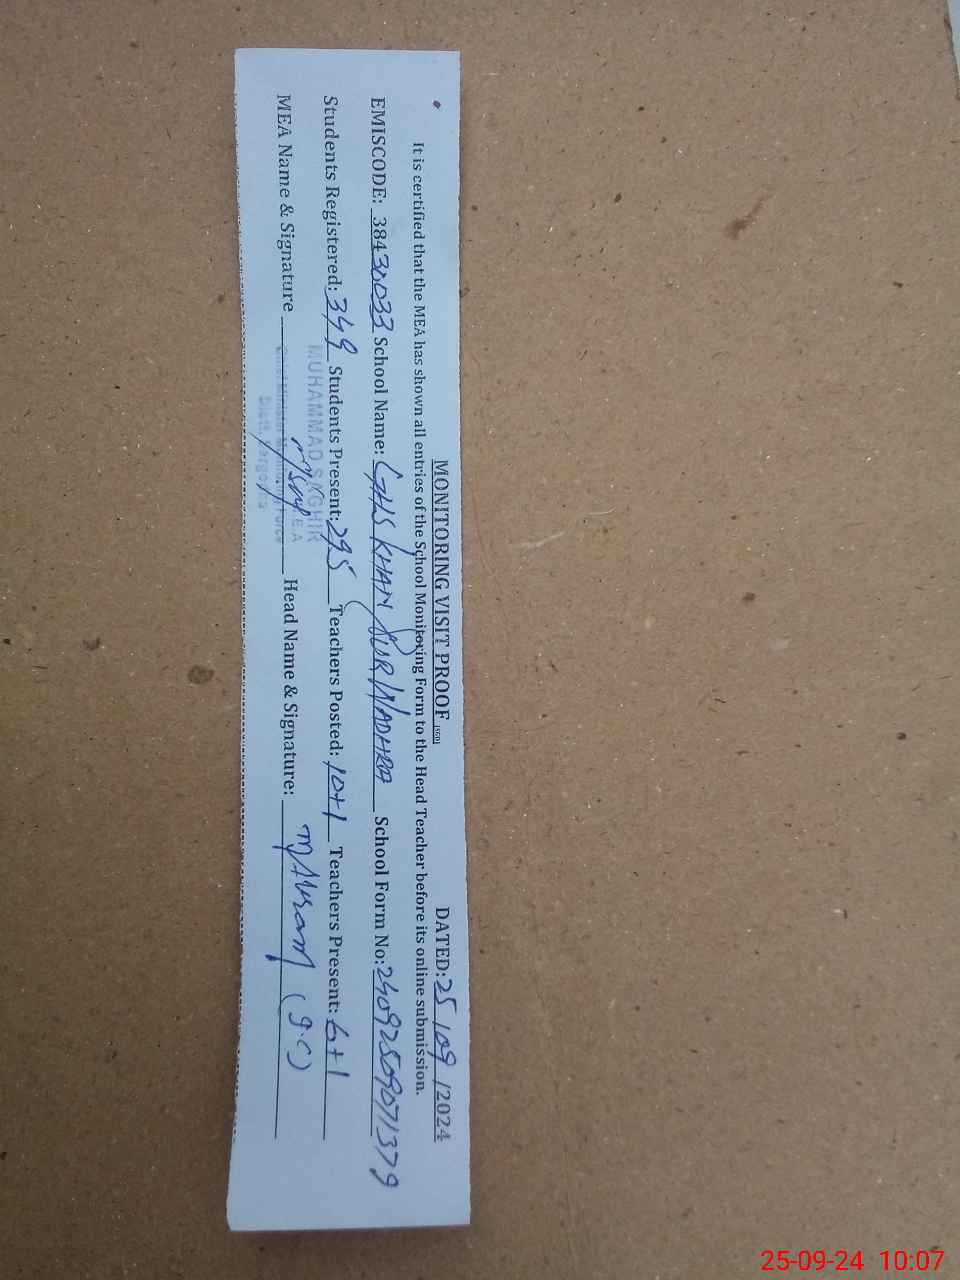 MONITORING VISIT PROOF (SED) DATED: 25/09/2024
It is certified that the MEA has shown all entries of the School Monitoring Form to the Head Teacher before its online submission.
EMISCODE: 38430033 School Name: GHS KHAN PUR WADHRA School Form No: 24092509071379
Students Registered: 349 Students Present: 295 Teachers Posted: 10+1 Teachers Present: 6+1
MUHAMMAD SAGHIR
MEA Name & Signature Head Name & Signature: M Akram (I.C)
M.E.A
Chief Minister Monitoring Force
Distt. Sargodha
25-09-24 10:07